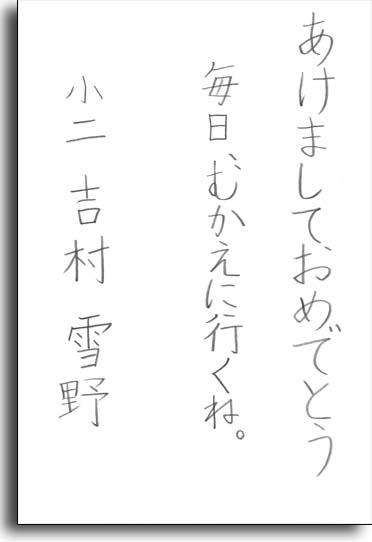 あけましておめでとう
毎日、むかえに行くね。
小二 吉村 雪野